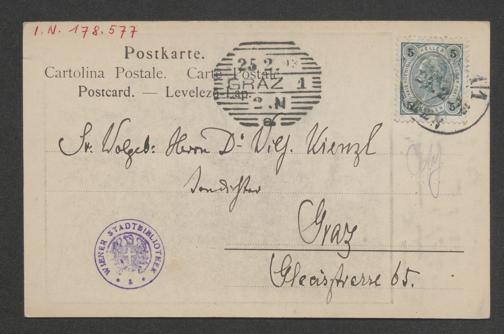 I.N. 178.577
Postkarte.
Cartolina Postale. Carte Postale.
Postcard. — Levelező-Lap.
25.2.
GRAZ 1
2.N
5 5
Sr. Wolgeb. Herrn Dr Wilh. Kienzl
Tondichter
Graz
Glacisstrasse 65.
WIENER STADTBIBLIOTHEK